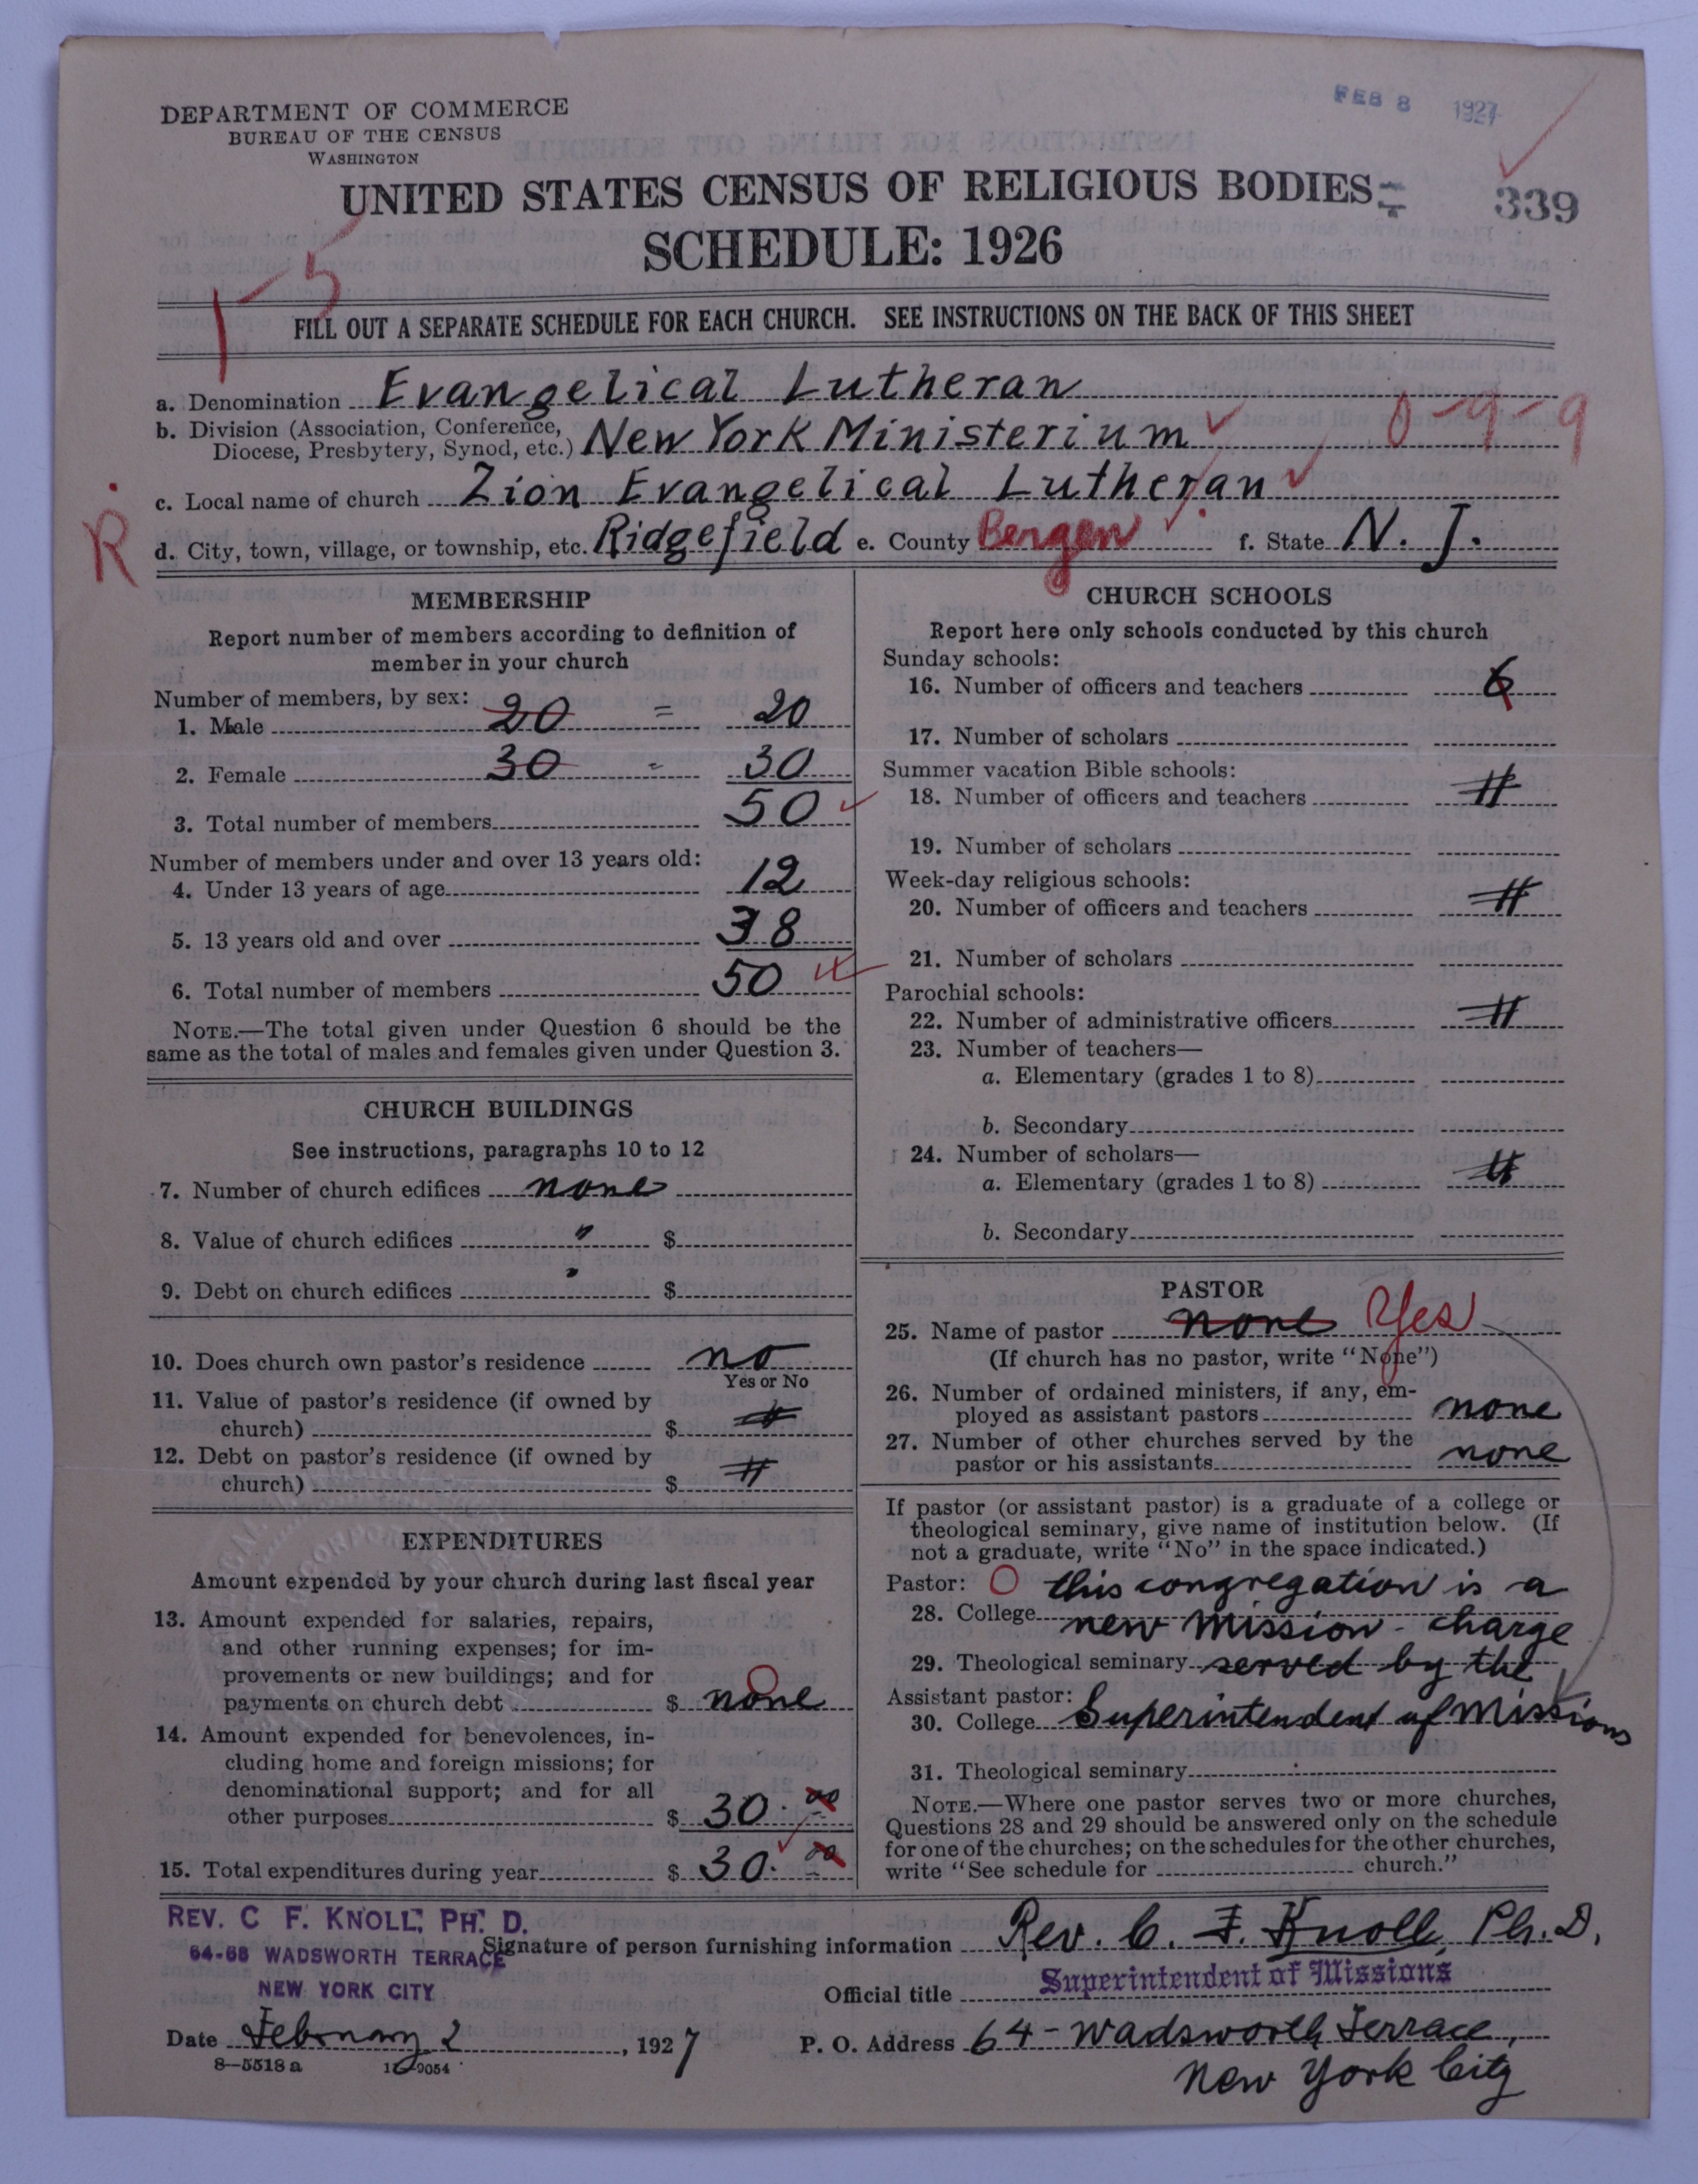 DEPARTMENT OF COMMERCE
BUREAU OF THE CENSUS
WASHINGTON
FEB 8 1927
UNITED STATES CENSUS OF RELIGIOUS BODIES
339
SCHEDULE: 1926
1-5
FILL OUT A SEPARATE SCHEDULE FOR EACH CHURCH. SEE INSTRUCTIONS ON THE BACK OF THIS SHEET
a. Denomination Evangelical Lutheran
b. Division (Association, Conference, Diocese, Presbytery, Synod, etc.) New York Ministerium 0-9-9
c. Local name of church Zion Evangelical Lutheran
R
d. City, town, village, or township, etc. Ridgefield e. County Bergen f. State N. J.
MEMBERSHIP
Report number of members according to definition of
member in your church
Number of members, by sex:
1. Male 20 = 20
2. Female 30 = 30
3. Total number of members 50
Number of members under and over 13 years old:
4. Under 13 years of age 12
5. 13 years old and over 38
6. Total number of members 50
NOTE.—The total given under Question 6 should be the
same as the total of males and females given under Question 3.
CHURCH BUILDINGS
See instructions, paragraphs 10 to 12
7. Number of church edifices none
8. Value of church edifices " $
9. Debt on church edifices " $
10. Does church own pastor's residence no
Yes or No
11. Value of pastor's residence (if owned by
church) $
12. Debt on pastor's residence (if owned by
church) $
EXPENDITURES
Amount expended by your church during last fiscal year
13. Amount expended for salaries, repairs,
and other running expenses; for im-
provements or new buildings; and for
payments on church debt $ none
14. Amount expended for benevolences, in-
cluding home and foreign missions; for
denominational support; and for all
other purposes $ 30.00
15. Total expenditures during year $ 30.00
CHURCH SCHOOLS
Report here only schools conducted by this church
Sunday schools:
16. Number of officers and teachers 6
17. Number of scholars
Summer vacation Bible schools:
18. Number of officers and teachers
19. Number of scholars
Week-day religious schools:
20. Number of officers and teachers
21. Number of scholars
Parochial schools:
22. Number of administrative officers
23. Number of teachers—
a. Elementary (grades 1 to 8)
b. Secondary
24. Number of scholars—
a. Elementary (grades 1 to 8)
b. Secondary
PASTOR
25. Name of pastor none Yes
(If church has no pastor, write "None")
26. Number of ordained ministers, if any, em-
ployed as assistant pastors none
27. Number of other churches served by the
pastor or his assistants none
If pastor (or assistant pastor) is a graduate of a college or
theological seminary, give name of institution below. (If
not a graduate, write "No" in the space indicated.)
Pastor: O this congregation is a
28. College new mission - charge
29. Theological seminary served by the
Assistant pastor:
30. College Superintendent of Missions
31. Theological seminary
NOTE.—Where one pastor serves two or more churches,
Questions 28 and 29 should be answered only on the schedule
for one of the churches; on the schedules for the other churches,
write "See schedule for church."
REV. C F. KNOLL, PH. D.
64-66 WADSWORTH TERRACE
NEW YORK CITY
Signature of person furnishing information Rev. C. F. Knoll, Ph. D.
Official title Superintendent of Missions
Date February 2, 1927
P. O. Address 64 - Wadsworth Terrace,
New York City
8—5518a